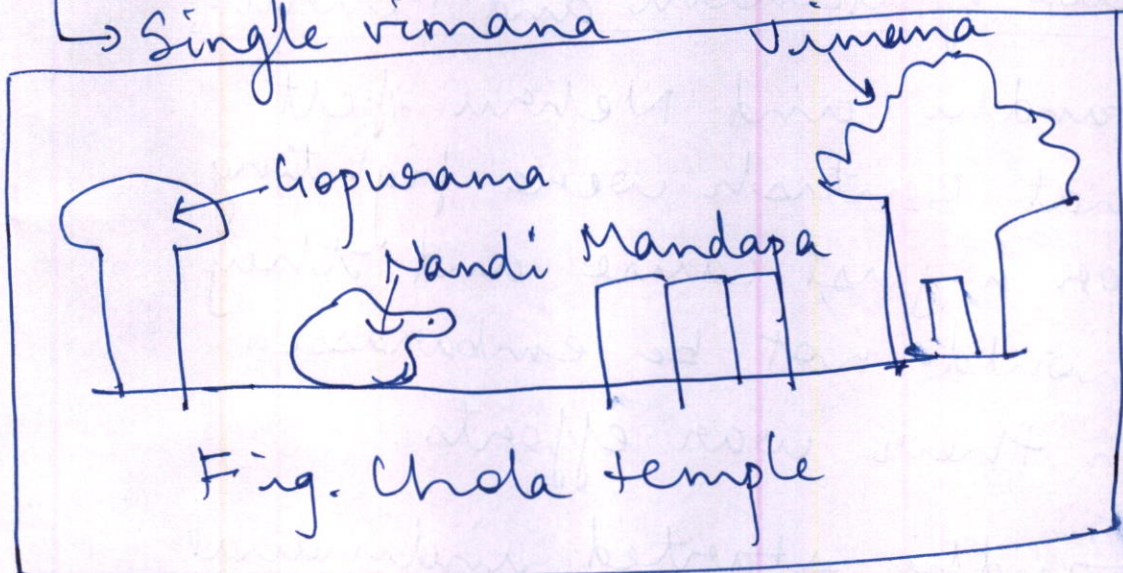 ↳ Single vimana
Vimana
Gopurama
Nandi
Mandapa
Fig. Chola temple